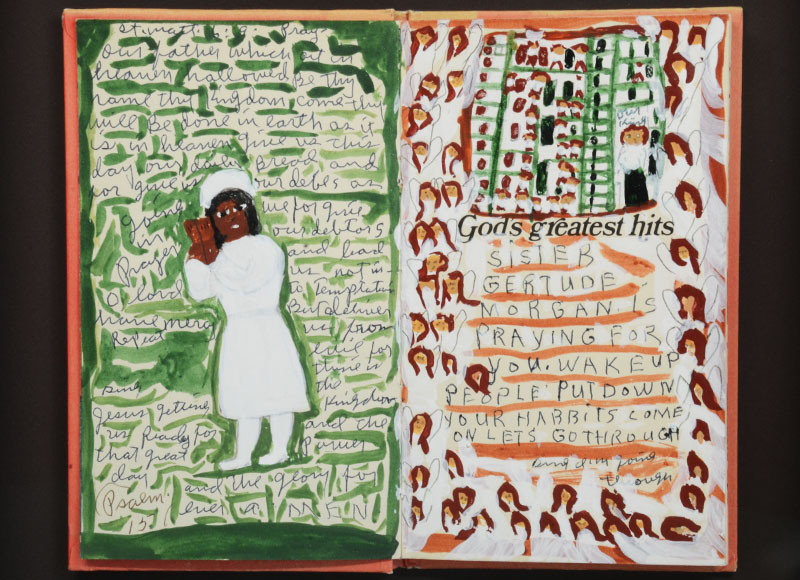 St matt Pray
our father which art in
heaven hallowed be thy
name thy kingdom come thy
will Be done in earth as it
is in heaven give us this
day our daily Bread and
for give us our debts as
Going we for give
in our debtors
Prayer and lead
O lord us not in-
have mercy to temptation
Repeat But deliver
us from
evil for
thine is
sing the
Jesus getting kingdom
us Ready for and the
that great Power
day and the glory for
Psalm: ever A M E N
God's greatest hits
SISTER
GERTUDE
MORGAN. IS
PRAYING FOR
YOU. WAKE UP
PEOPLE PUT DOWN
YOUR HABBITS COME
ON LETS GO THROUGH
going
through